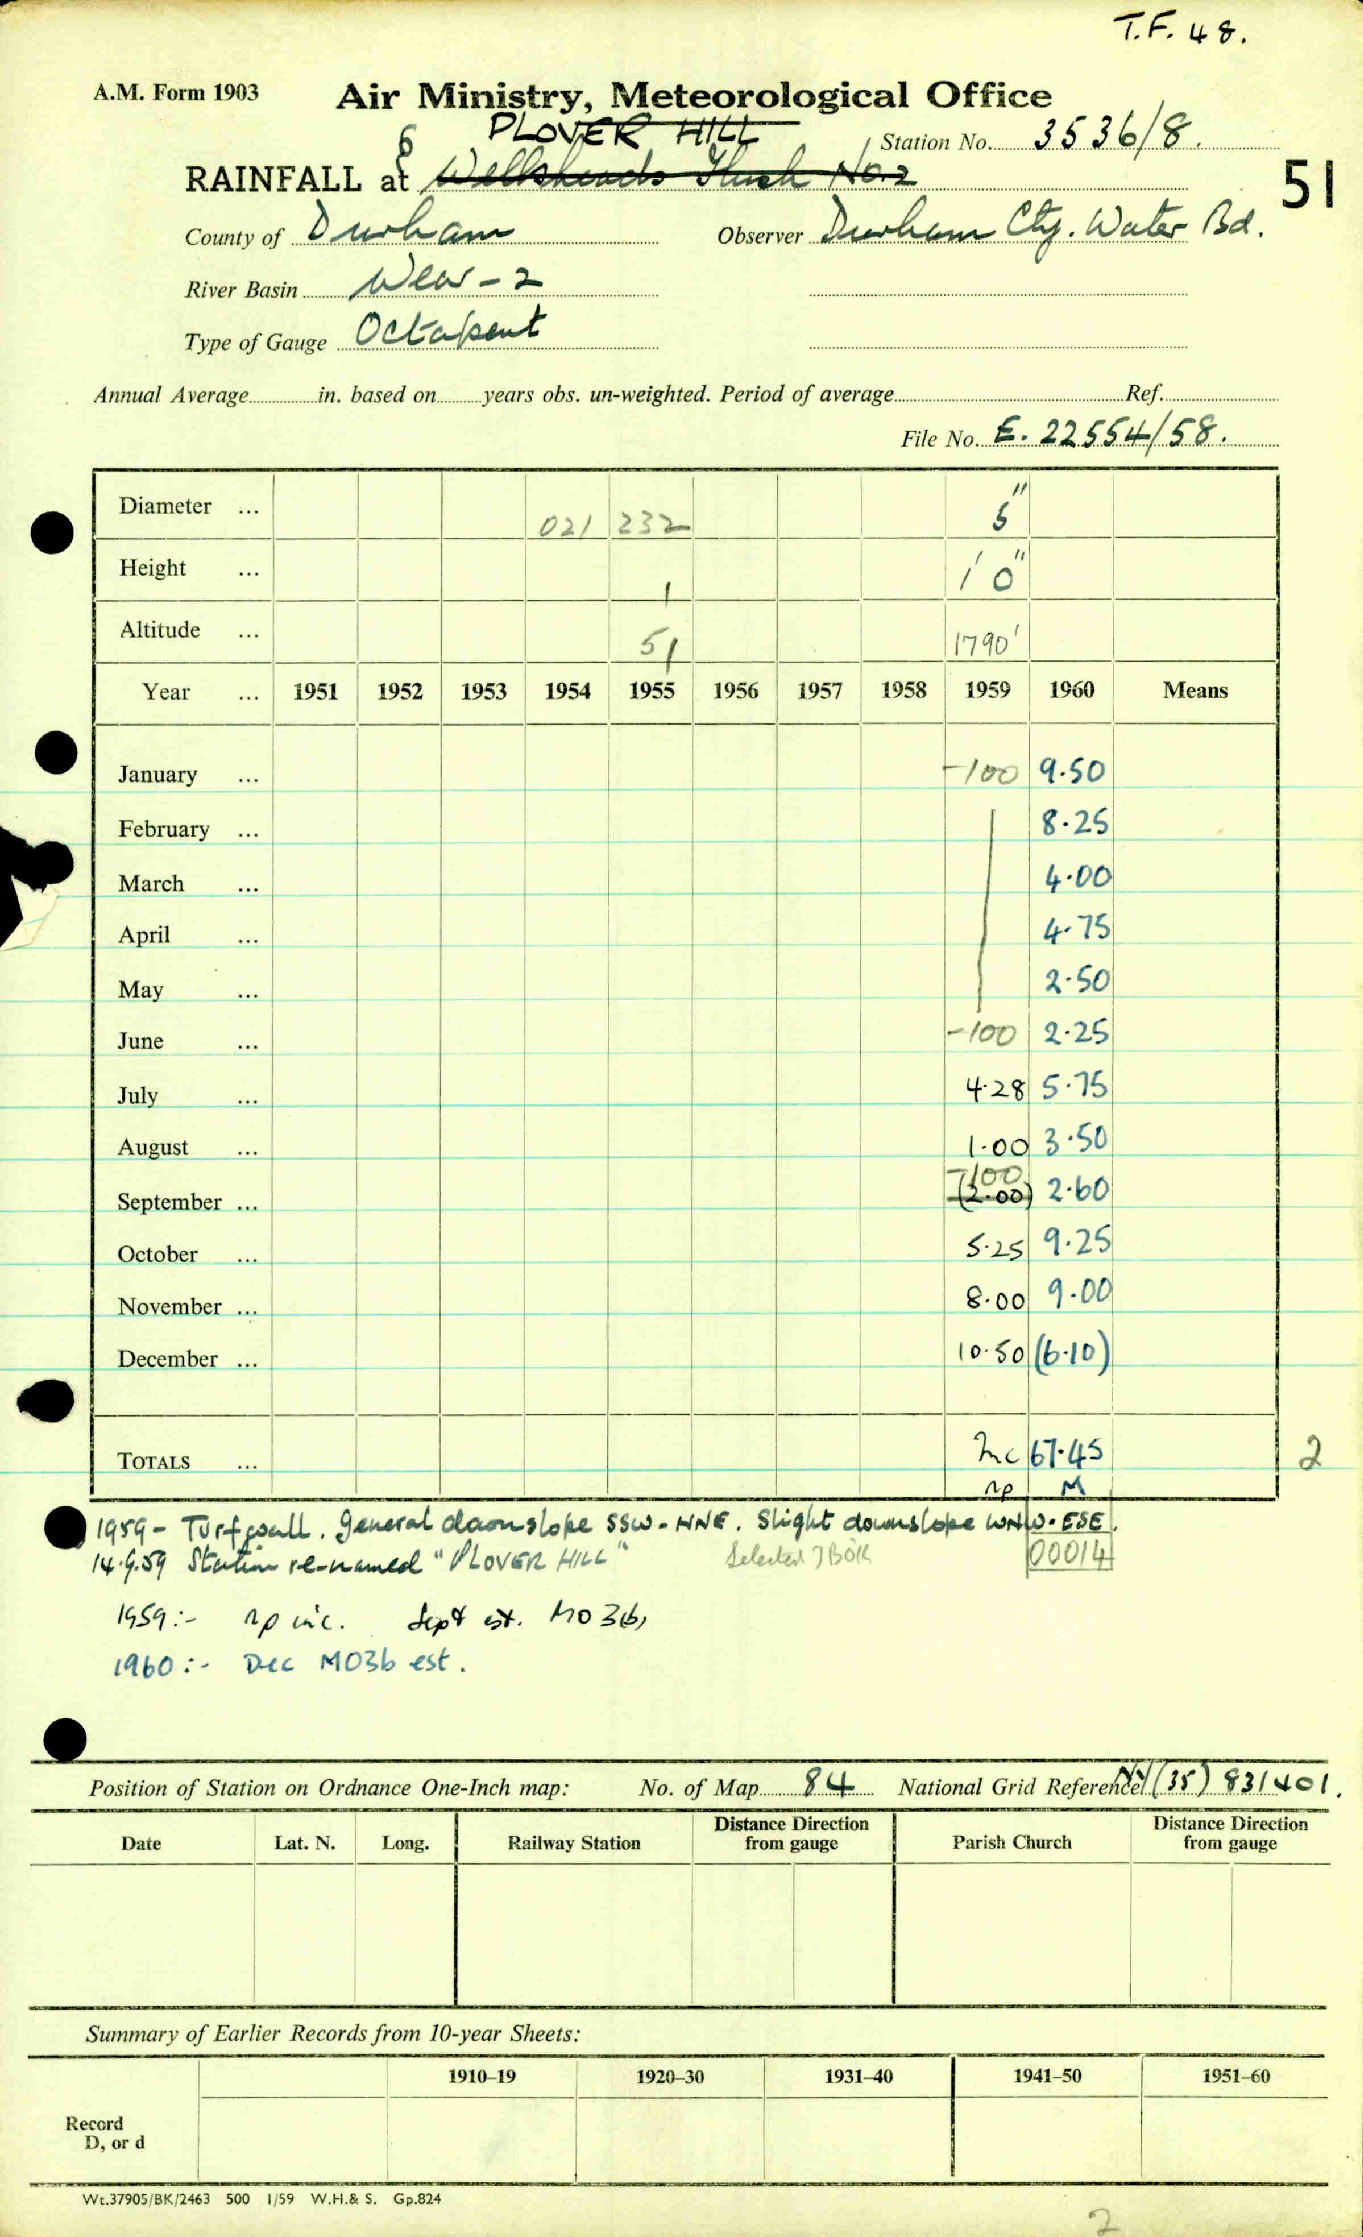 T.F. 48.
A.M. Form 1903 Air Ministry, Meteorological Office
6 PLOVER HILL Station No. 3536/8.
RAINFALL at Wellsheads Hush No.2 51
County of Durham Observer Durham Cty. Water Bd.
River Basin Wear - 2
Type of Gauge Octapent
Annual Average in. based on years obs. un-weighted. Period of average Ref.
File No. E. 22554/58.
Diameter ... 021 232 5"
Height ... 1 1' 0"
Altitude ... 51 1790'
Year ... 1951 1952 1953 1954 1955 1956 1957 1958 1959 1960 Means
January ... -100 9.50
February ... 8.25
March ... 4.00
April ... 4.75
May ... 2.50
June ... -100 2.25
July ... 4.28 5.75
August ... 1.00 3.50
-100
September ... (2.00) 2.60
October ... 5.25 9.25
November ... 8.00 9.00
December ... 10.50 (6.10)
TOTALS ... Inc 67.45 2
np M
1959 - Turf wall. General downslope SSW - NNE. Slight downslope WNW - ESE.
14.9.59 Station re-named "PLOVER HILL" Selected 00014
1959:- np inc. Sept est. MO3b,
1960:- Dec MO3b est.
Position of Station on Ordnance One-Inch map: No. of Map 84 National Grid Reference NY (35) 831401.
Date Lat. N. Long. Railway Station Distance Direction from gauge Parish Church Distance Direction from gauge
Summary of Earlier Records from 10-year Sheets:
1910–19 1920–30 1931–40 1941–50 1951–60
Record
D, or d
Wt.37905/BK/2463 500 1/59 W.H.& S. Gp.824
2